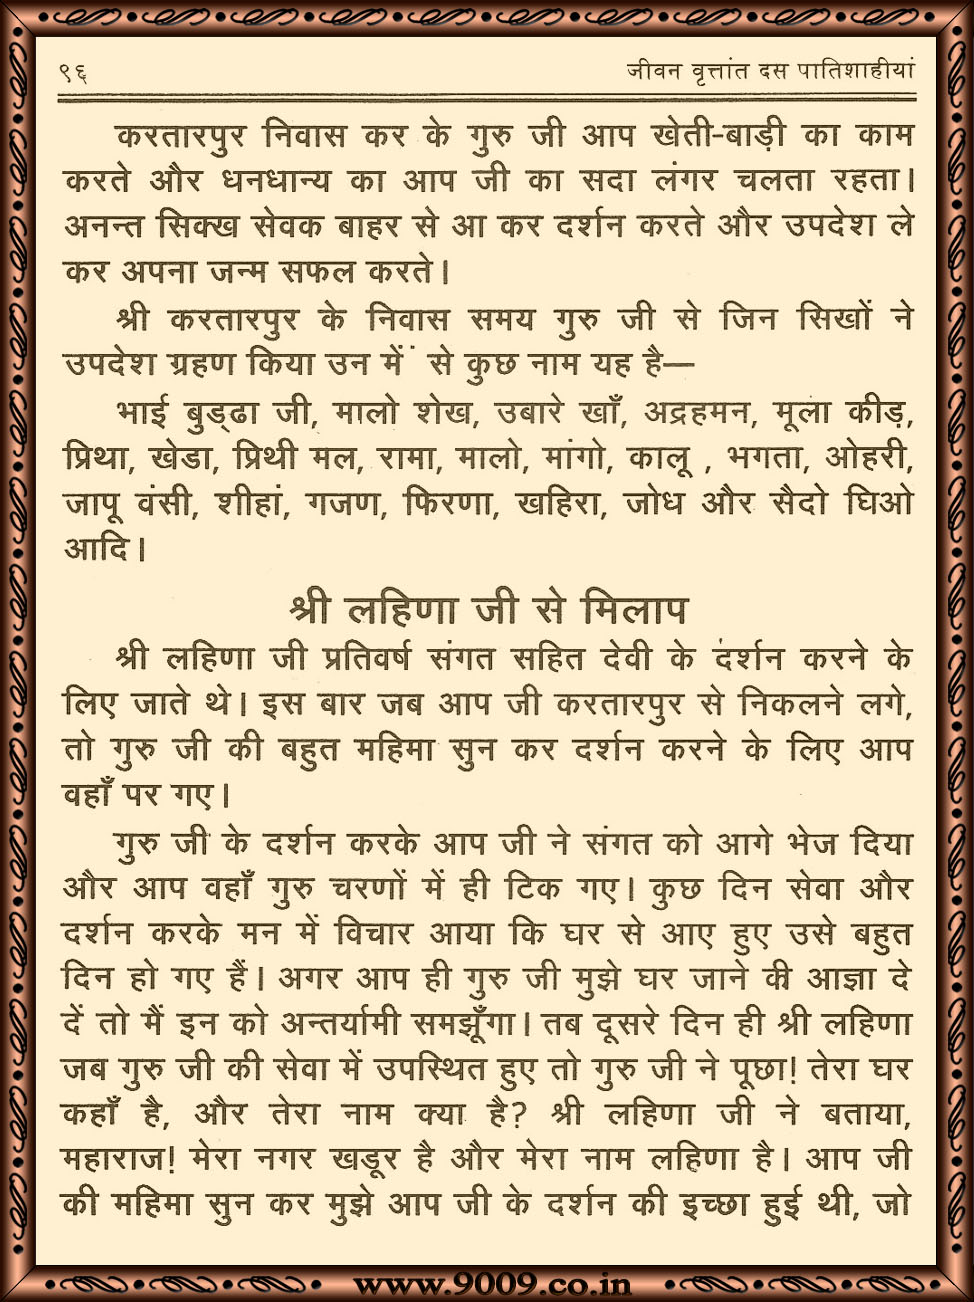 ९६ जीवन वृत्तांत दस पातिशाहीयां
करतारपुर निवास कर के गुरु जी आप खेती-बाड़ी का काम
करते और धनधान्य का आप जी का सदा लंगर चलता रहता।
अनन्त सिक्ख सेवक बाहर से आ कर दर्शन करते और उपदेश ले
कर अपना जन्म सफल करते।
श्री करतारपुर के निवास समय गुरु जी से जिन सिखों ने
उपदेश ग्रहण किया उन में से कुछ नाम यह है—
भाई बुड्ढा जी, मालो शेख, उबारे खाँ, अद्रहमन, मूला कीड़,
प्रिथा, खेडा, प्रिथी मल, रामा, मालो, मांगो, कालू , भगता, ओहरी,
जापू वंसी, शीहां, गजण, फिरणा, खहिरा, जोध और सैदो घिओ
आदि।
श्री लहिणा जी से मिलाप
श्री लहिणा जी प्रतिवर्ष संगत सहित देवी के दर्शन करने के
लिए जाते थे। इस बार जब आप जी करतारपुर से निकलने लगे,
तो गुरु जी की बहुत महिमा सुन कर दर्शन करने के लिए आप
वहाँ पर गए।
गुरु जी के दर्शन करके आप जी ने संगत को आगे भेज दिया
और आप वहाँ गुरु चरणों में ही टिक गए। कुछ दिन सेवा और
दर्शन करके मन में विचार आया कि घर से आए हुए उसे बहुत
दिन हो गए हैं। अगर आप ही गुरु जी मुझे घर जाने की आज्ञा दे
दें तो मैं इन को अन्तर्यामी समझूँगा। तब दूसरे दिन ही श्री लहिणा
जब गुरु जी की सेवा में उपस्थित हुए तो गुरु जी ने पूछा! तेरा घर
कहाँ है, और तेरा नाम क्या है? श्री लहिणा जी ने बताया,
महाराज! मेरा नगर खडूर है और मेरा नाम लहिणा है। आप जी
की महिमा सुन कर मुझे आप जी के दर्शन की इच्छा हुई थी, जो
www.9009.co.in